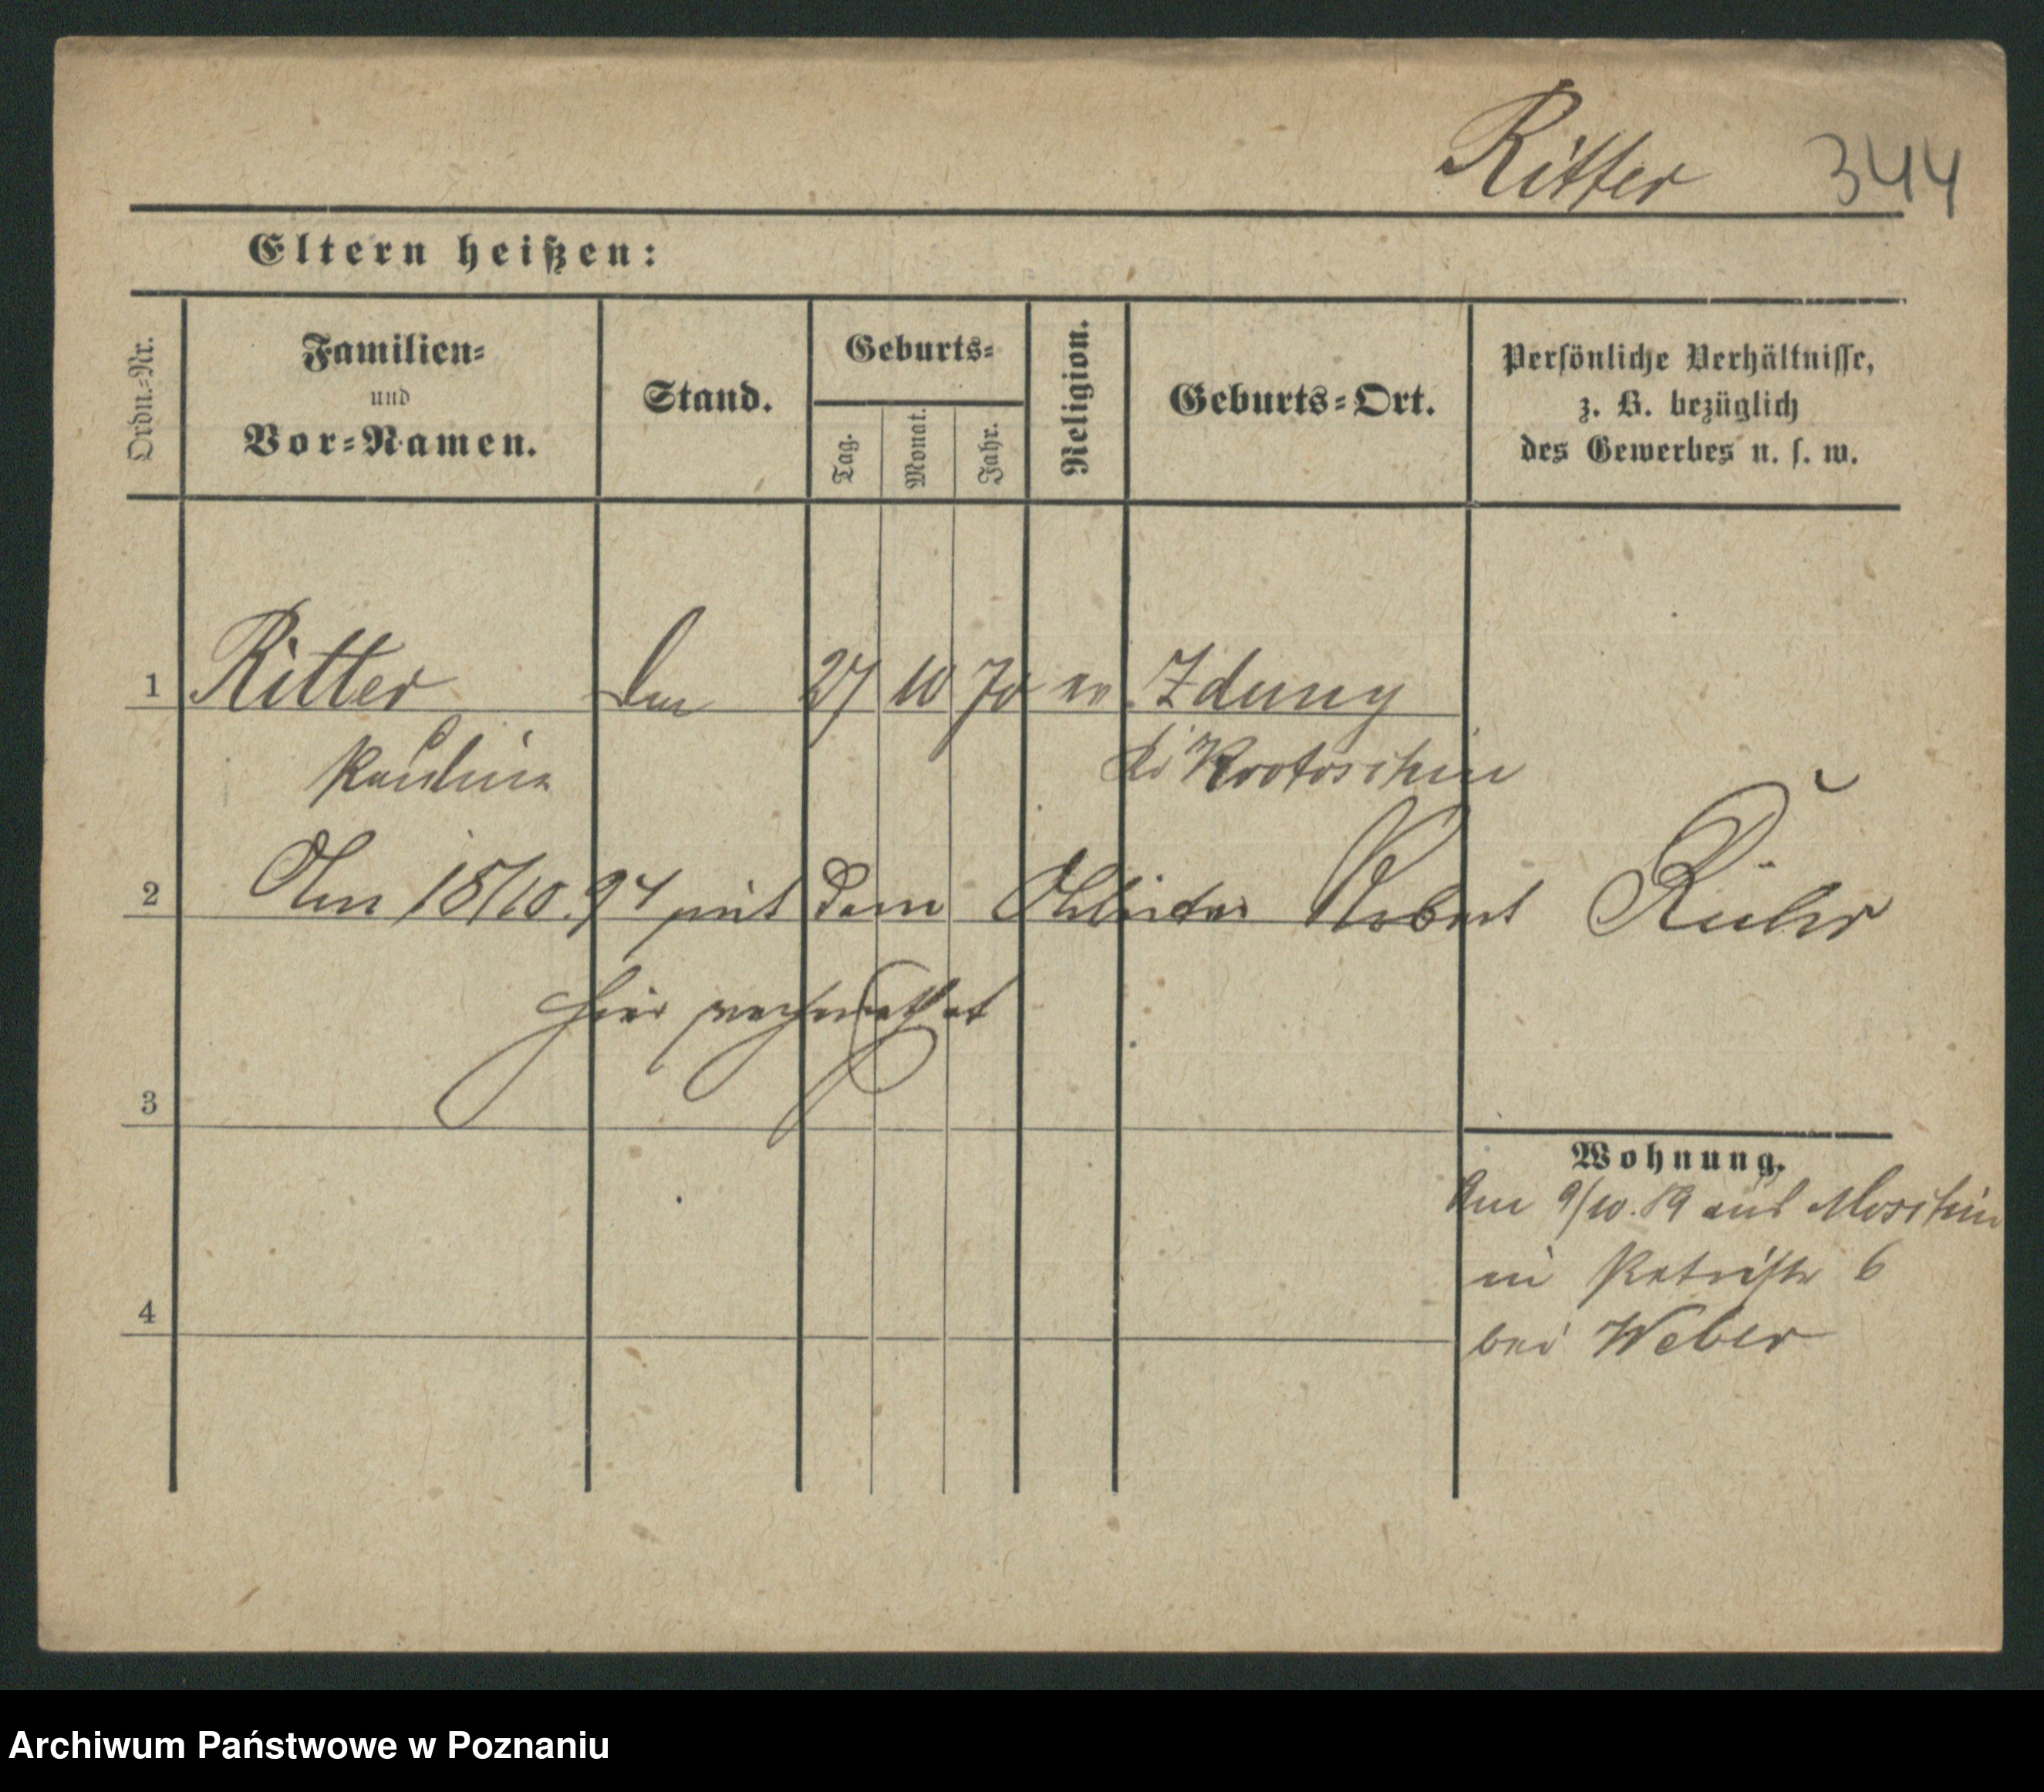 Ritter 344
Eltern heißen:
Ordn.-Nr.
Familien-
und
Vor-Namen.
Stand.
Geburts-
Tag.
Monat.
Jahr.
Religion.
Geburts-Ort.
Persönliche Verhältnisse,
z. B. bezüglich
des Gewerbes u. s. w.
1 Ritter 27 10 70 ev. Zduny
Pauline Kr Krotoschin
2 Am 15/10.94 mit dem Arbeiter Robert Rühr
hier verheirathet
3
Wohnung.
Am 9/10.89 aus Moschin
in Petristr 6
4
bei Weber
Archiwum Państwowe w Poznaniu